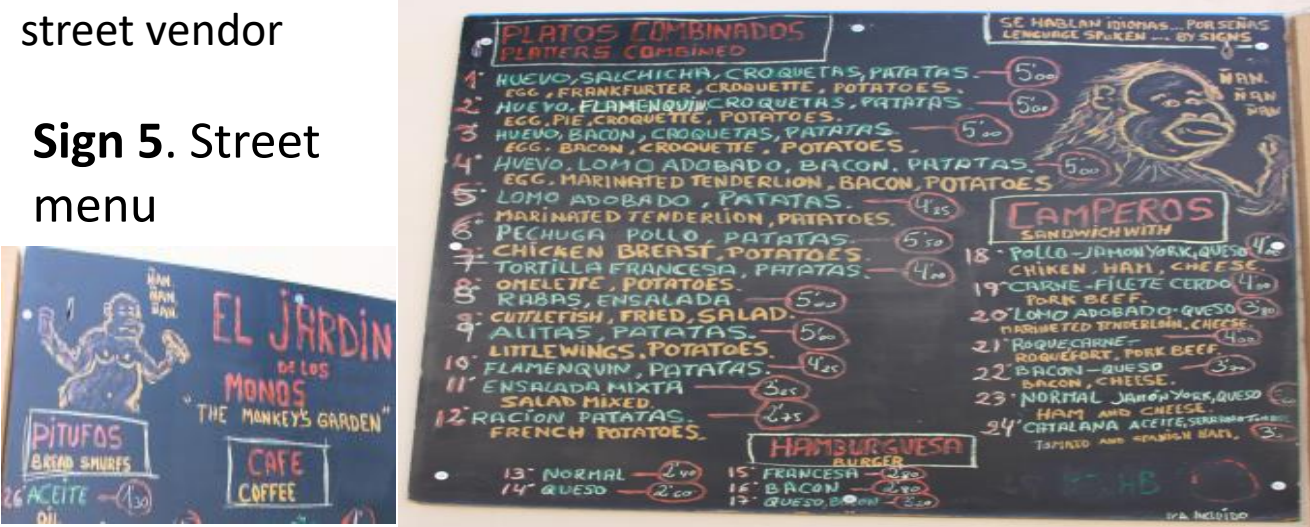 street vendor
Sign 5. Street
menu
ÑAN.
ÑAN.
ÑAN.
EL JARDIN
DE LOS
MONOS
"THE MONKEY'S GARDEN"
PITUFOS
BREAD SMURFS
CAFE
COFFEE
26 ACEITE 1'30
OIL
PLATOS COMBINADOS
PLATTERS COMBINED
SE HABLAN IDIOMAS... POR SEÑAS
LENGUAGE SPOKEN .... BY SIGNS
1· HUEVO, SALCHICHA, CROQUETAS, PATATAS. 5'00
EGG, FRANKFURTER, CROQUETTE, POTATOES.
2· HUEVO, FLAMENQUIN, CROQUETAS, PATATAS 5'00
EGG, PIE, CROQUETTE, POTATOES.
3· HUEVO, BACON, CROQUETAS, PATATAS 5'00
EGG. BACON, CROQUETTE, POTATOES.
4· HUEVO, LOMO ADOBADO, BACON. PATATAS 5'00
EGG, MARINATED TENDERLION, BACON, POTATOES
5· LOMO ADOBADO, PATATAS. 4'25
MARINATED TENDERLION, PATATOES.
6· PECHUGA POLLO, PATATAS. 5'50
CHICKEN BREAST, POTATOES.
7· TORTILLA FRANCESA, PATATAS. 4'00
OMELETTE, POTATOES.
8· RABAS, ENSALADA 5'00
CUTTLEFISH, FRIED, SALAD.
9· ALITAS, PATATAS. 5'00
LITTLE WINGS, POTATOES.
10· FLAMENQUIN, PATATAS. 4'25
11· ENSALADA MIXTA 3'25
SALAD MIXED.
12· RACION PATATAS. 2'75
FRENCH POTATOES.
ÑAN.
ÑAN
ÑAN
CAMPEROS
SANDWICH WITH
18· POLLO-JAMON YORK, QUESO 4'00
CHIKEN. HAM, CHEESE.
19· CARNE-FILETE CERDO 4'00
PORK BEEF.
20· LOMO ADOBADO-QUESO 3'80
MARINETED TENDERLOIN, CHEESE.
21· ROQUECARNE- 4'00
ROQUEFORT, PORK BEEF
22· BACON-QUESO
BACON, CHEESE.
23· NORMAL JAMÓN YORK, QUESO
HAM AND CHEESE.
24· CATALANA ACEITE, SERRANO
TOMATO AND SPANISH HAM,
HAMBURGUESA
BURGER
13· NORMAL 2'40
14· QUESO 2'60
15· FRANCESA 2'80
16· BACON 2'80
17· QUESO, BACON 3'20
IVA INCLUIDO